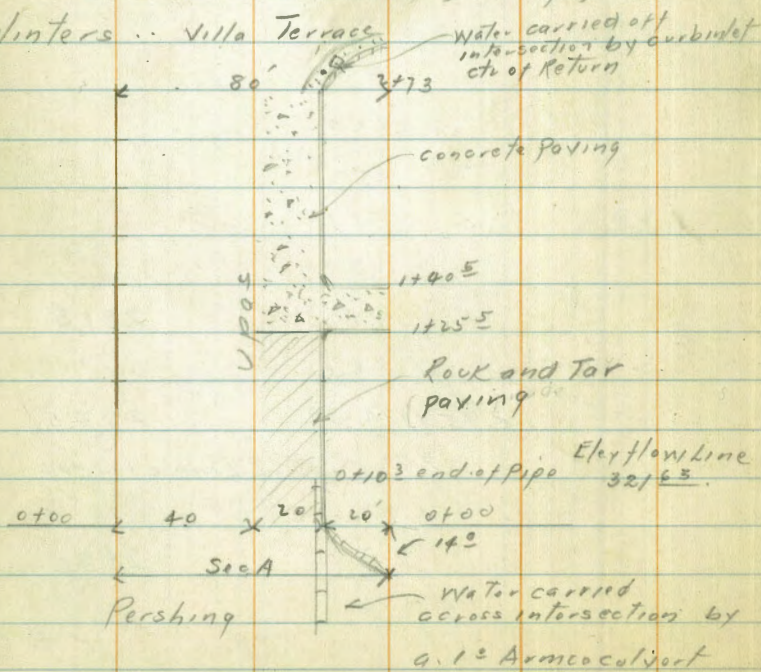 Winters .. Villa Terrace
Water carried off
intersection by curbinlet
ctr of Return
80' 2+73
concrete Paving
1+40 5
1+25 5
Upas
Rock and Tar
paving
0+10 3 end of Pipe
Elev flow Line
321 63.
0+00 40 20' 20' 0+00
14 0
Sec A
Pershing
Water carried
across intersection by
a. 1 0 Armco culvert